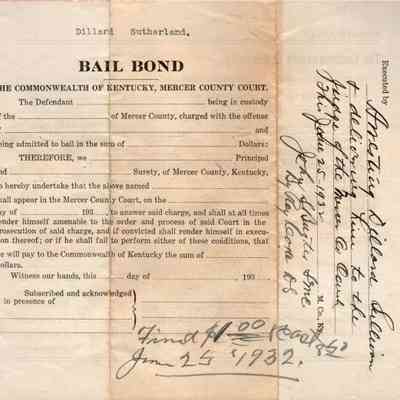 Dillard Sutherland.
BAIL BOND
HE COMMONWEALTH OF KENTUCKY, MERCER COUNTY COURT,
The Defendant being in custody
f the of Mercer County, charged with the offense
and
eing admitted to bail in the sum of Dollars:
THEREFORE, we Principal
nd Surety, of Mercer County, Kentucky,
o hereby undertake that the above named
hall appear in the Mercer County Court, on the
ay of 193 , to answer said charge, and shall at all times
ender himself amenable to the order and process of said Court in the
rosecution of said charge, and if convicted shall render himself in execu-
on thereof; or if he shall fail to perform either of these conditions, that
e will pay to the Commonwealth of Kentucky the sum of
ollars.
Witness our hands, this day of 193
Subscribed and acknowledged
in presence of
Fined $1.00
June 25 1932.
Executed by
Arresting Dillard
& delivering him to the
Judge of the Mercer Co Court
This June 25 1932
M. Co. Ky.
By